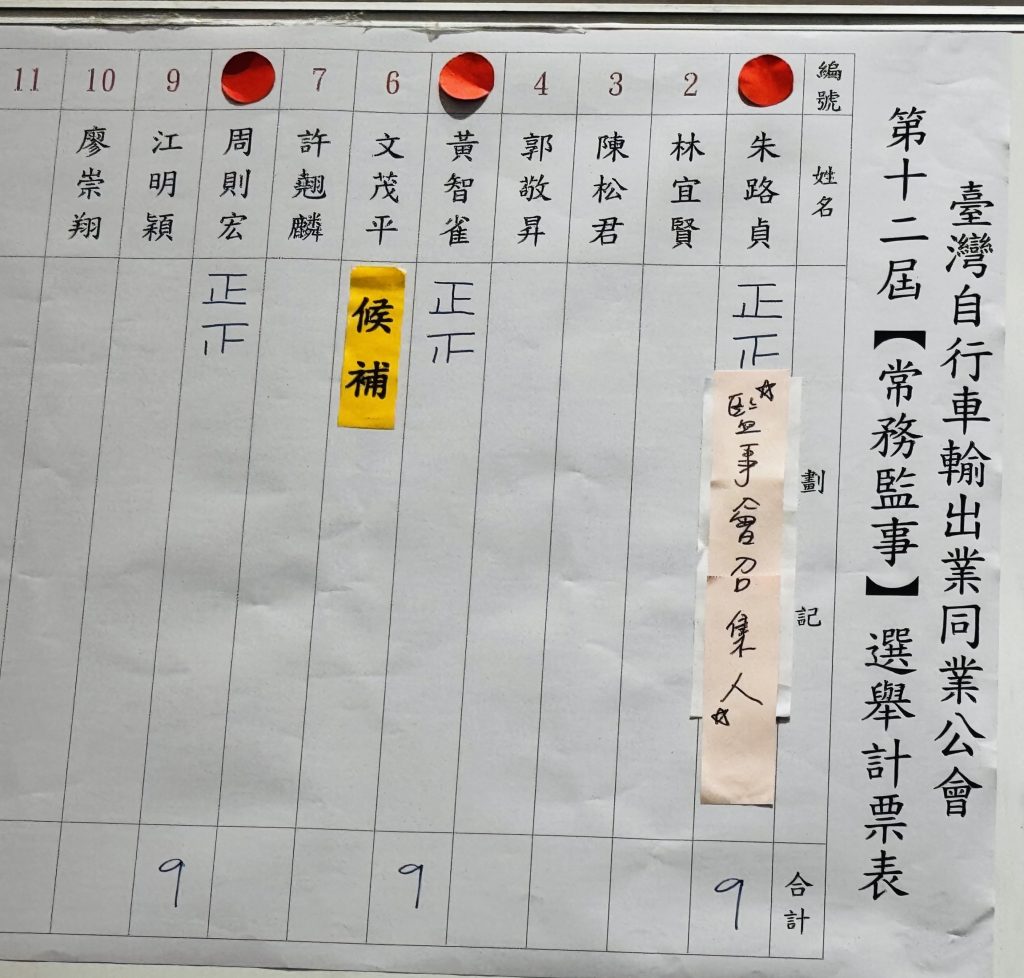 臺灣自行車輸出業同業公會
第十二屆【常務監事】選舉計票表
編號 姓名 劃記 合計
朱路貞 正正 9
監事會召集人
2 林宜賢
3 陳松君
4 郭敬昇
黃智雀 正正 9
6 文茂平 候補
7 許翹麟
周則宏 正正 9
9 江明穎
10 廖崇翔
11